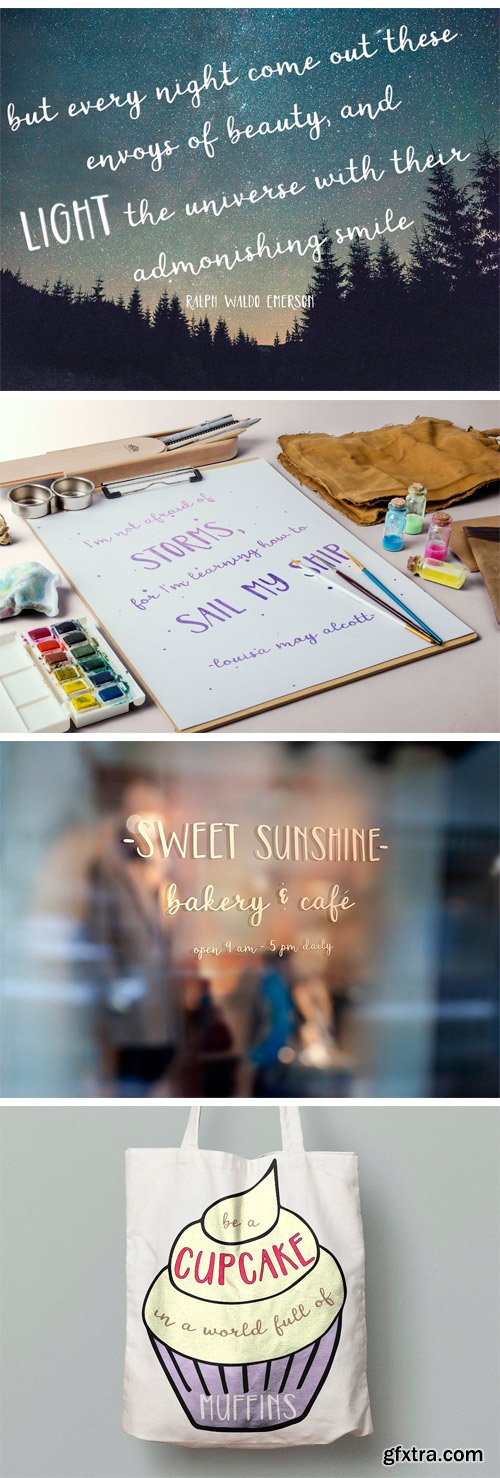 but every night come out these
envoys of beauty, and
LIGHT the universe with their
admonishing smile
RALPH WALDO EMERSON
I'm not afraid of
STORMS,
for I'm learning how to
SAIL MY SHIP
-Louisa May Alcott-
-SWEET SUNSHINE-
bakery & café
open 9 am - 5 pm daily
be a
CUPCAKE
in a world full of
MUFFINS
gfxtra.com